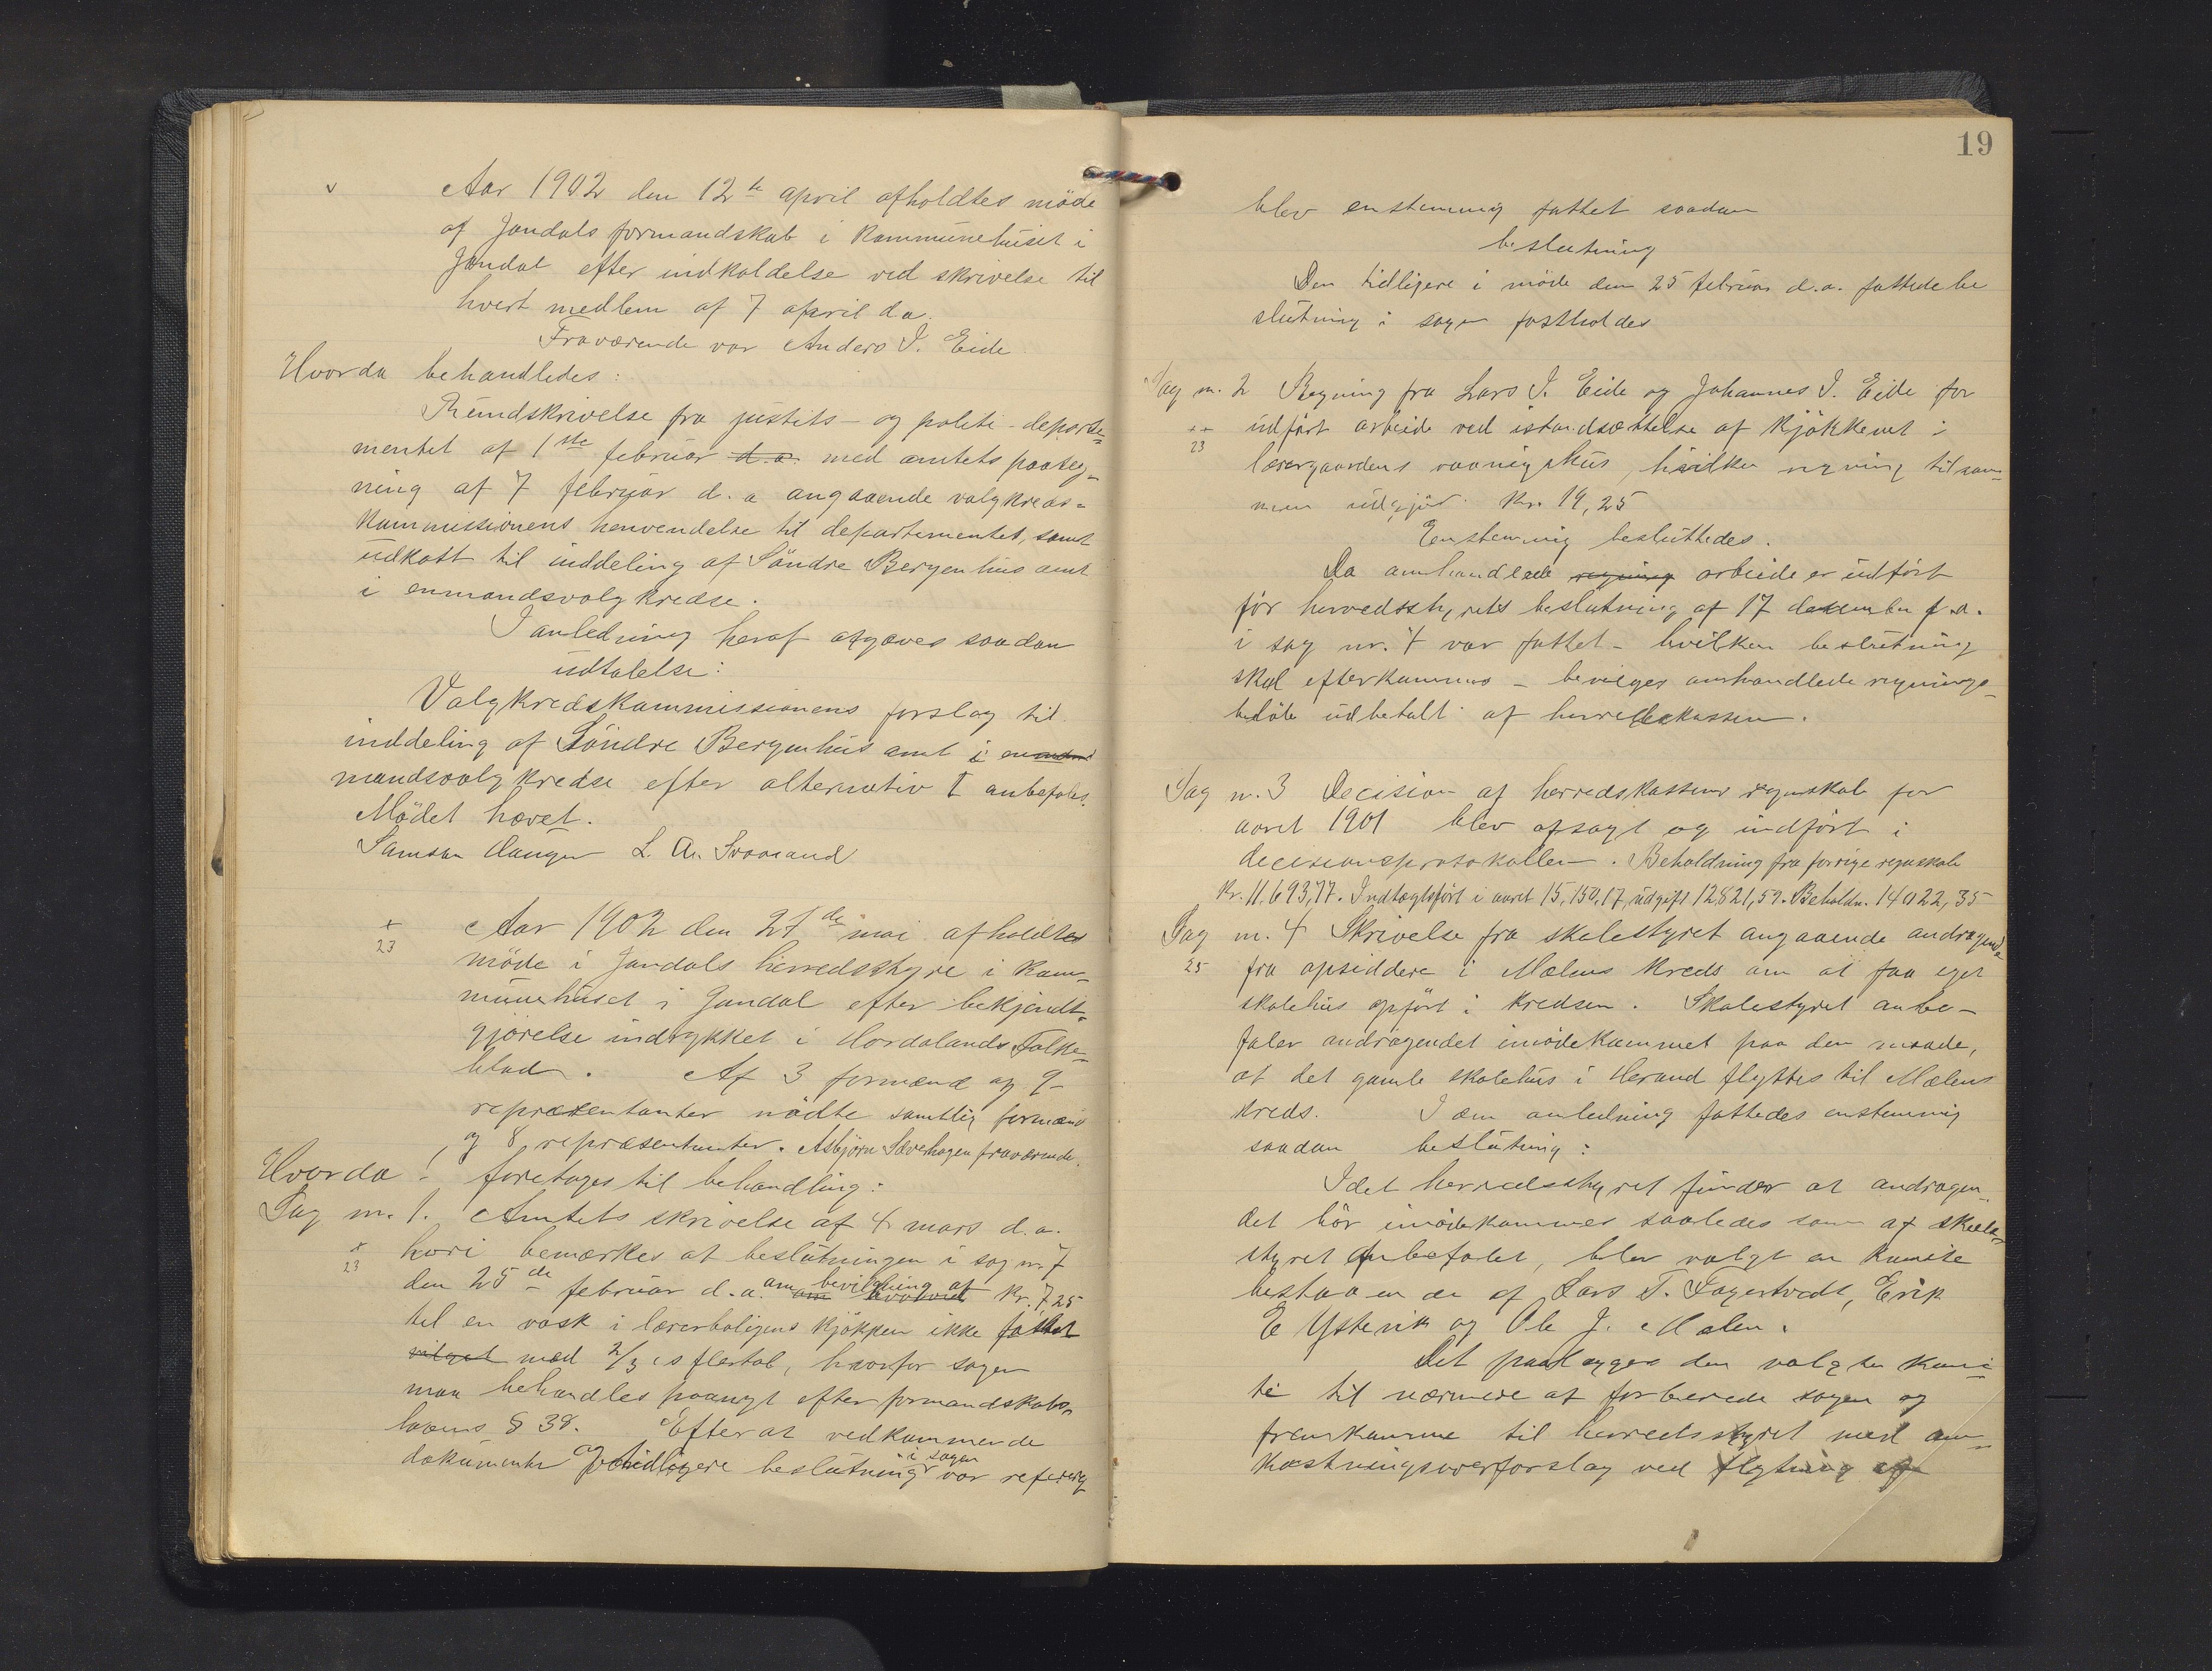 v Aar 1902 den 12te april afholdtes möde
af Jondals formandskab i Kommunehuset i
Jondal efter indkaldelse ved skrivelse til
hvert medlem af 7 april d.a.
Fraværende var Anders I. Eide
Hvorda behandledes:
Rundskrivelse fra justits- og politi-departe-
mentet af 1ste februar d.a. med amtets paateg-
ning af 7 februar d.a angaaende valgkreds-
Kommissionens henvendelse til departementet, samt
udkast til inddeling af Söndre Bergenhus amt
i enmandsvalgkredse.
I anledning heraf afgaves saadan
udtalelse:
Valgkredskommissionens forslag til
inddeling af Söndre Bergenhus amt i en
mandsvalgkredse efter alternativ I anbefales.
Mödet hævet.
Samson Haugen L. A. Svaasand
+
23
Aar 1902 den 27de mai afholdtes
möde i Jondals herredsstyre i Kom-
munehuset i Jondal efter bekjendt-
gjörelse indrykket i Hordalands Folke-
blad. Af 3 formænd og 9
repræsentanter mödte samtlig formænd
og 8 repræsentanter. Asbjörn Sæverhagen fraværende.
Hvorda foretoges til behandling:
Sag nr. 1. Amtets skrivelse af 4 mars d.a.
x
23
hvori bemærkes at beslutningen i sag nr. 7
den 25de februar d.a. om bevilgning af Kr. 7,25
til en vask i lærerboligens kjökken ikke fattet
vilget med 2/3's flertal, hvorfor sagen
maa behandles paanyt efter formandskabs-
lovens § 38. Efterat vedkommende
dokumenter og tidligere beslutning i sagen var refereret
19
blev enstemmig fattet saadan
beslutning
Den tidligere i möde den 25 februar d.a. fattede be
slutning i sagen fastholdes
Sag nr. 2 Regning fra Lars I. Eide og Johannes I. Eide for
++
23
udfört arbeide ved istandsættelse af Kjökkenet i
lærergaardens vaaningshus, hvilken regning tilsam-
men udgjör Kr. 19,25
Enstemmig besluttedes.
Da omhandlede regning arbeide er udfört
för herredsstyrets beslutning af 17 december f.a.
i sag nr. 4 var fattet - hvilken beslutning
skal efterkommes - bevilges omhandlede regnings-
belöb udbetalt af herredskassen.
Sag nr. 3 Decision af herredskassens regnskab for
aaret 1901 blev afsagt og indfört i
decisionsprotokollen. Beholdning fra forrige regnskab
Kr. 11,693,77. Indtægtsfört i aaret 15,150,17, udgift 12821,59. Beholdn. 14022,35
Sag nr. 4 Skrivelse fra skolestyret angaaende andragende
25
fra opsiddere i Mælens Kreds om at faa eget
skolehus opfört i Kredsen. Skolestyret anbe-
faler andragendet imödekommet paa den maade,
at det gamle skolehus i Herand flyttes til Mælens
Kreds. I den anledning fattedes enstemmig
saadan beslutning:
Idet herredsstyret finder at andragen-
det bör imödekommes saaledes som af skole-
styret anbefalet, blev valgt en Komite
bestaaende af Lars T. Fagertvedt, Erik
E Ystevik og Ole J. Mælen.
Det paalægges den valgte Komi-
te til nærmere at forberede sagen og
fremkomme til herredsstyret med om-
kostningsoverforslag ved flytning af